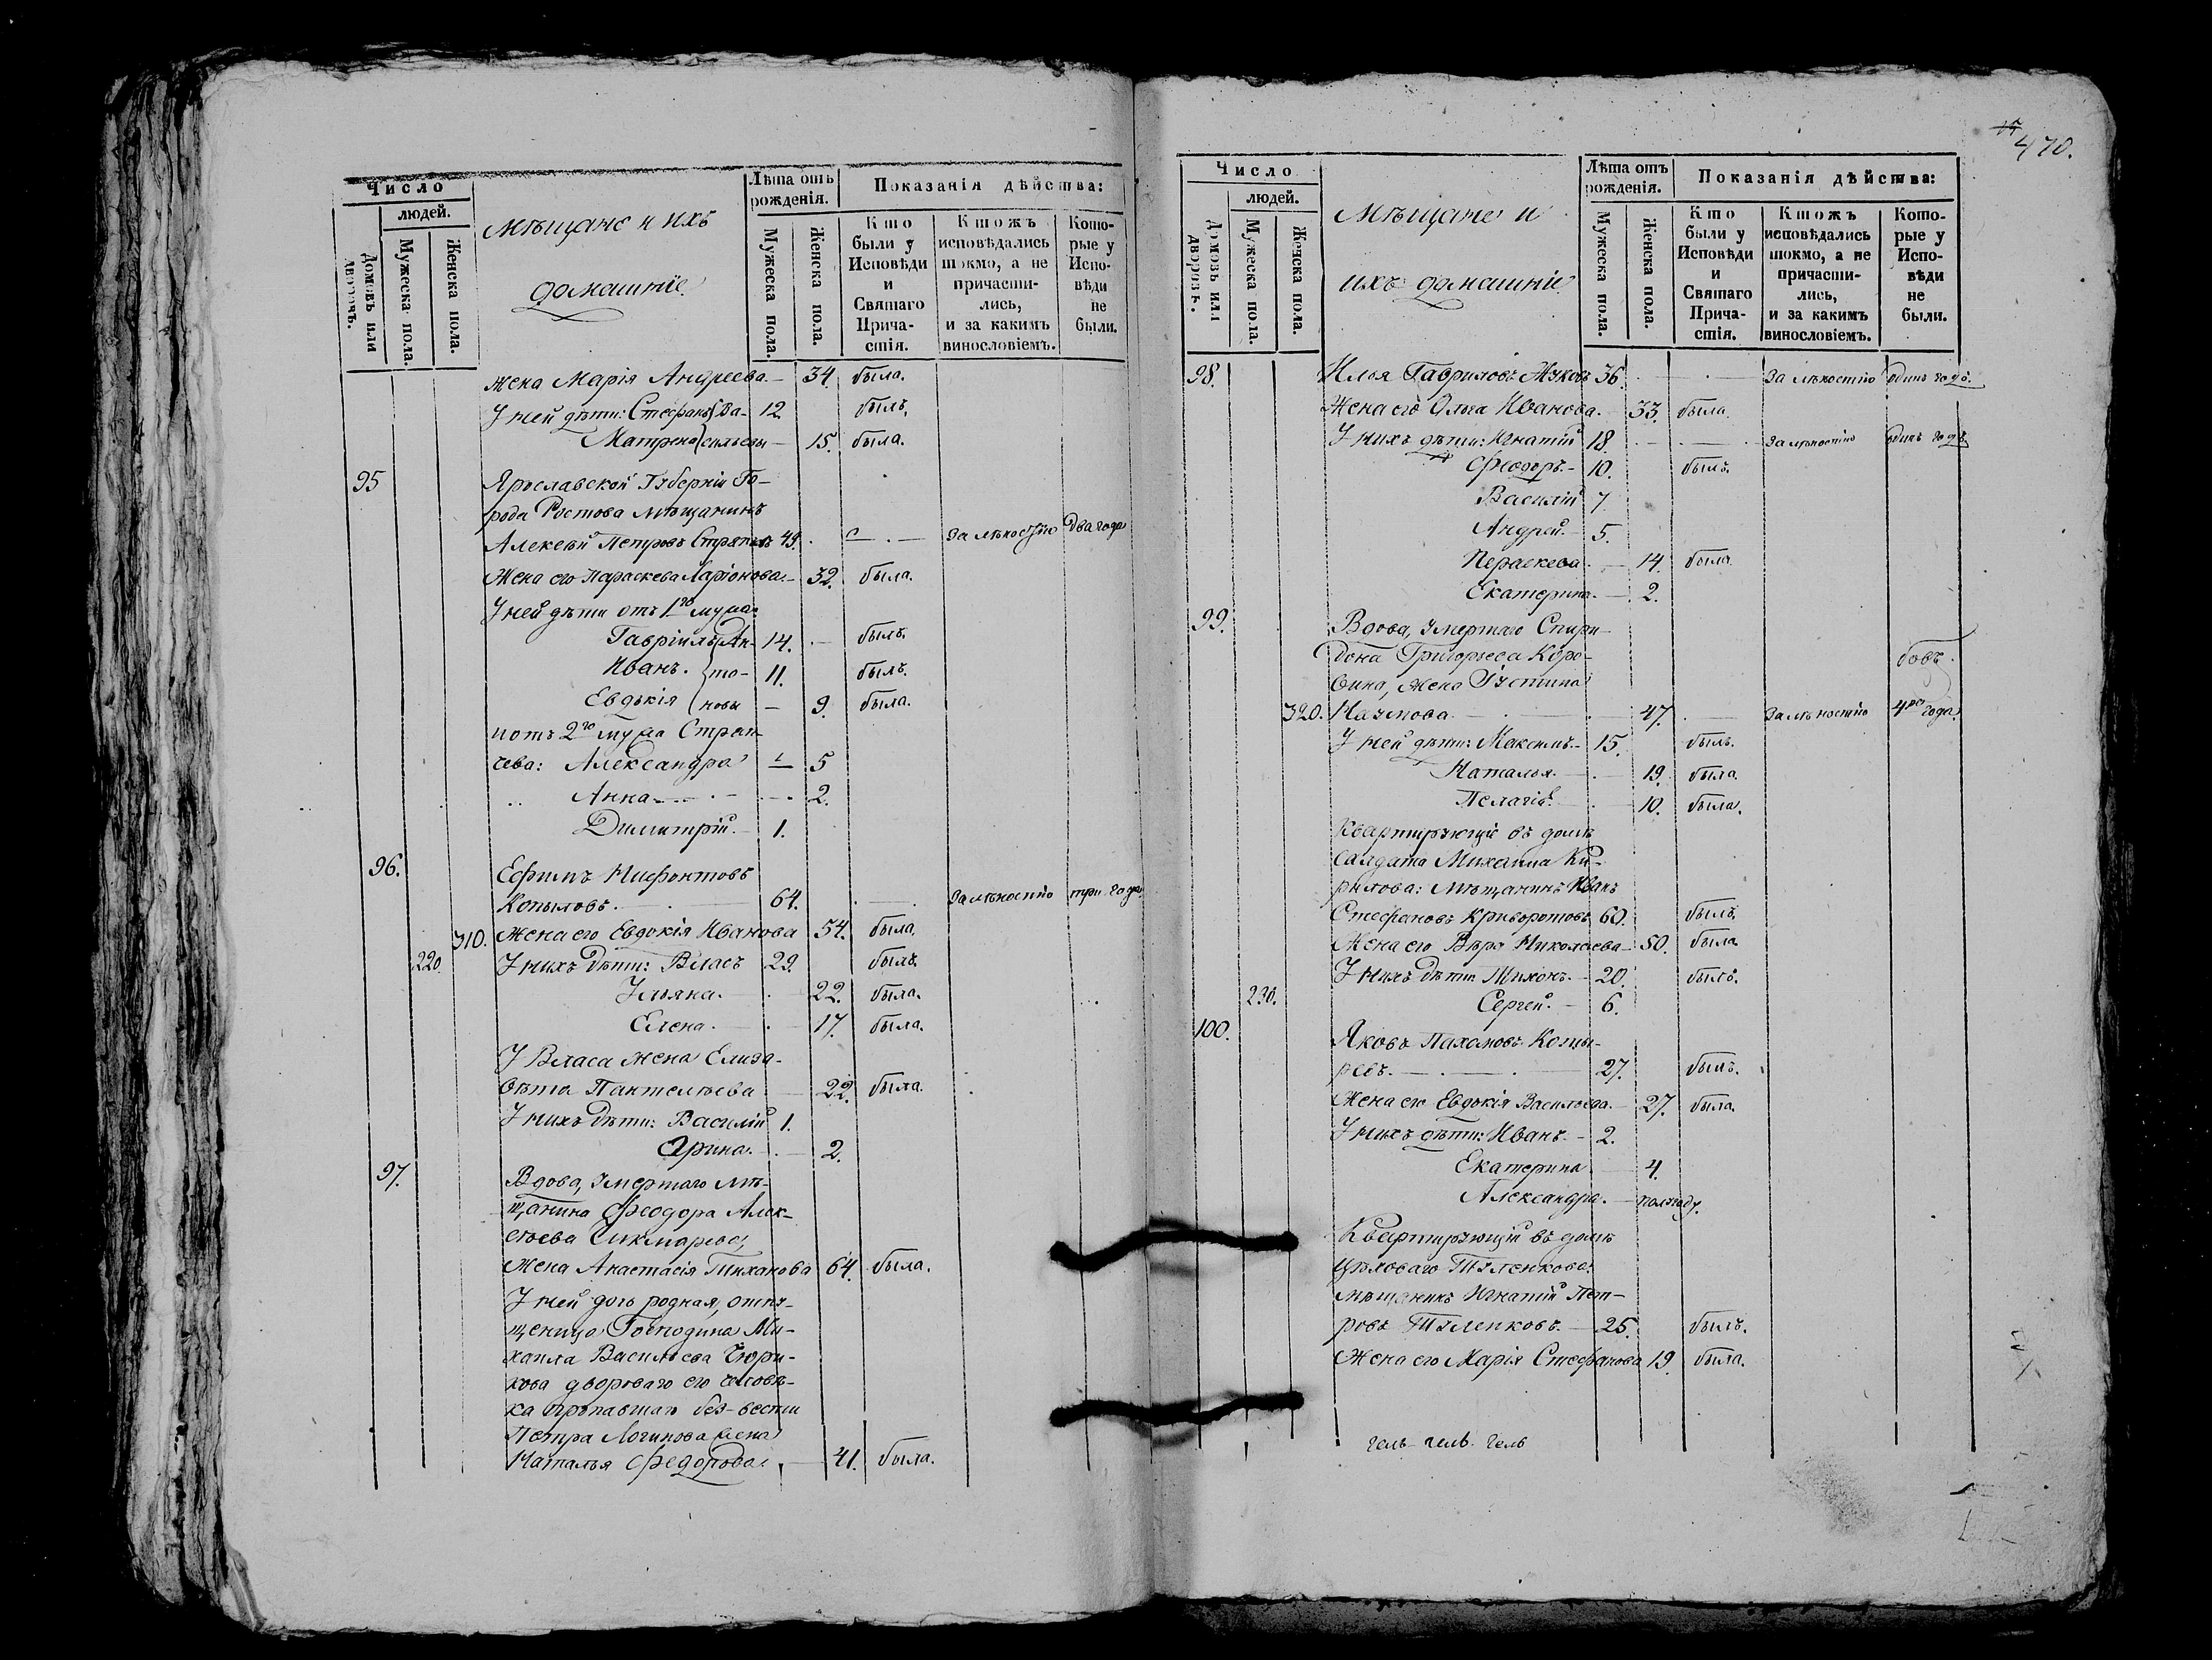 470.
Число
людей.
Домовъ или дворовъ.
Мужеска пола.
Женска пола.
Мѣщане и ихъ
домашніе
Лѣта отъ
рожденія.
Мужеска пола.
Женска пола.
Показанія дѣйства:
Кто
были у
Исповѣди
и
Святаго
Прича-
стія.
Ктожъ
исповѣдались
токмо, а не
причасти-
лись,
и за какимъ
винословіемъ.
Кото-
рые у
Испо-
вѣди
не
были.
жена Марія Андреева. 34. была.
У ней дѣти: Стефанъ Ва- 12. былъ.
Матрена сильевы 15. была.
95 Ярославской Губерніи Го-
рода Ростова мѣщанинъ
Алексѣй Петровъ 49. за лѣностію два года
Жена его Параскева Ларіонова 32. была.
У ней дѣти отъ 1го мужа
Гавріилъ Ан- 14. былъ.
Иванъ. то- 11. былъ.
Евдокія новы 9. была.
и отъ 2го мужа Стряп-
чева: Александра 5
Анна 2.
Димитрій. 1.
96. Ефимъ Нифонтовъ
Копыловъ. 64. за лѣностію три года
310. Жена его Евдокія Иванова 54. была.
220. У нихъ дѣти: Власъ 29. былъ.
Ульяна. 22. была.
Елена. 17. была.
У Власа жена Елиза-
вѣта Пантелѣева 22. была.
У нихъ дѣти: Василій 1.
Арина. 2.
97. Вдова, умершаго мѣ-
щанина Феодора Алек-
сѣева
Жена Анастасія Тиханова 64. была.
У ней дочь родная, отпу-
щеница Господина Ми-
хаила Васильева
двороваго его человѣ-
ка пропавшаго без-вести
Петра Логинова жена
Наталья Федорова. 41. была.
Число
людей.
Домовъ или дворовъ.
Мужеска пола.
Женска пола.
Мѣщане и
ихъ домашніе
Лѣта отъ
рожденія.
Мужеска пола.
Женска пола.
Показанія дѣйства:
Кто
были у
Исповѣди
и
Святаго
Прича-
стія.
Ктожъ
исповѣдались
токмо, а не
причасти-
лись,
и за какимъ
винословіемъ.
Кото-
рые у
Испо-
вѣди
не
были.
98. Илья Гавриловъ Жуковъ 36. за лѣностію одинъ годъ.
Жена его Ольга Иванова. 33. была.
У нихъ дѣти: Игнатій 18. за лѣностію одинъ годъ
Феодоръ. 10. былъ.
Василій 7.
Андрей. 5.
Пераскева 14. была.
Екатерина. 2.
99. Вдова, умершаго Спири-
дона Григорьева Коро-
вина, жена Устинья
320. Наумова 47. за лѣностію 4ре года.
У ней дѣти: Максимъ. 15. былъ.
Наталья. 19. была.
Пелагія. 10. была.
Квартирующіе въ домѣ
салдата Михаила Ки-
рилова: мѣщанинъ Иванъ
Стефановъ Криворотовъ 60. былъ.
Жена его Вѣра Николаева 50. была.
У нихъ дѣти Тихонъ. 20. былъ.
230. Сергей. 6.
100. Яковъ Пахомовъ Копы-
ревъ. 27. былъ.
Жена его Евдокія Васильева. 27. была.
У нихъ дѣти: Иванъ. 2.
Екатерина 4.
Александра. полгоду.
Квартирующій въ домѣ
цѣховаго Тюленкова:
мѣщанинъ Игнатій Пет-
ровъ Тюленковъ. 25. былъ.
Жена его Марія Стефанова 19. была.